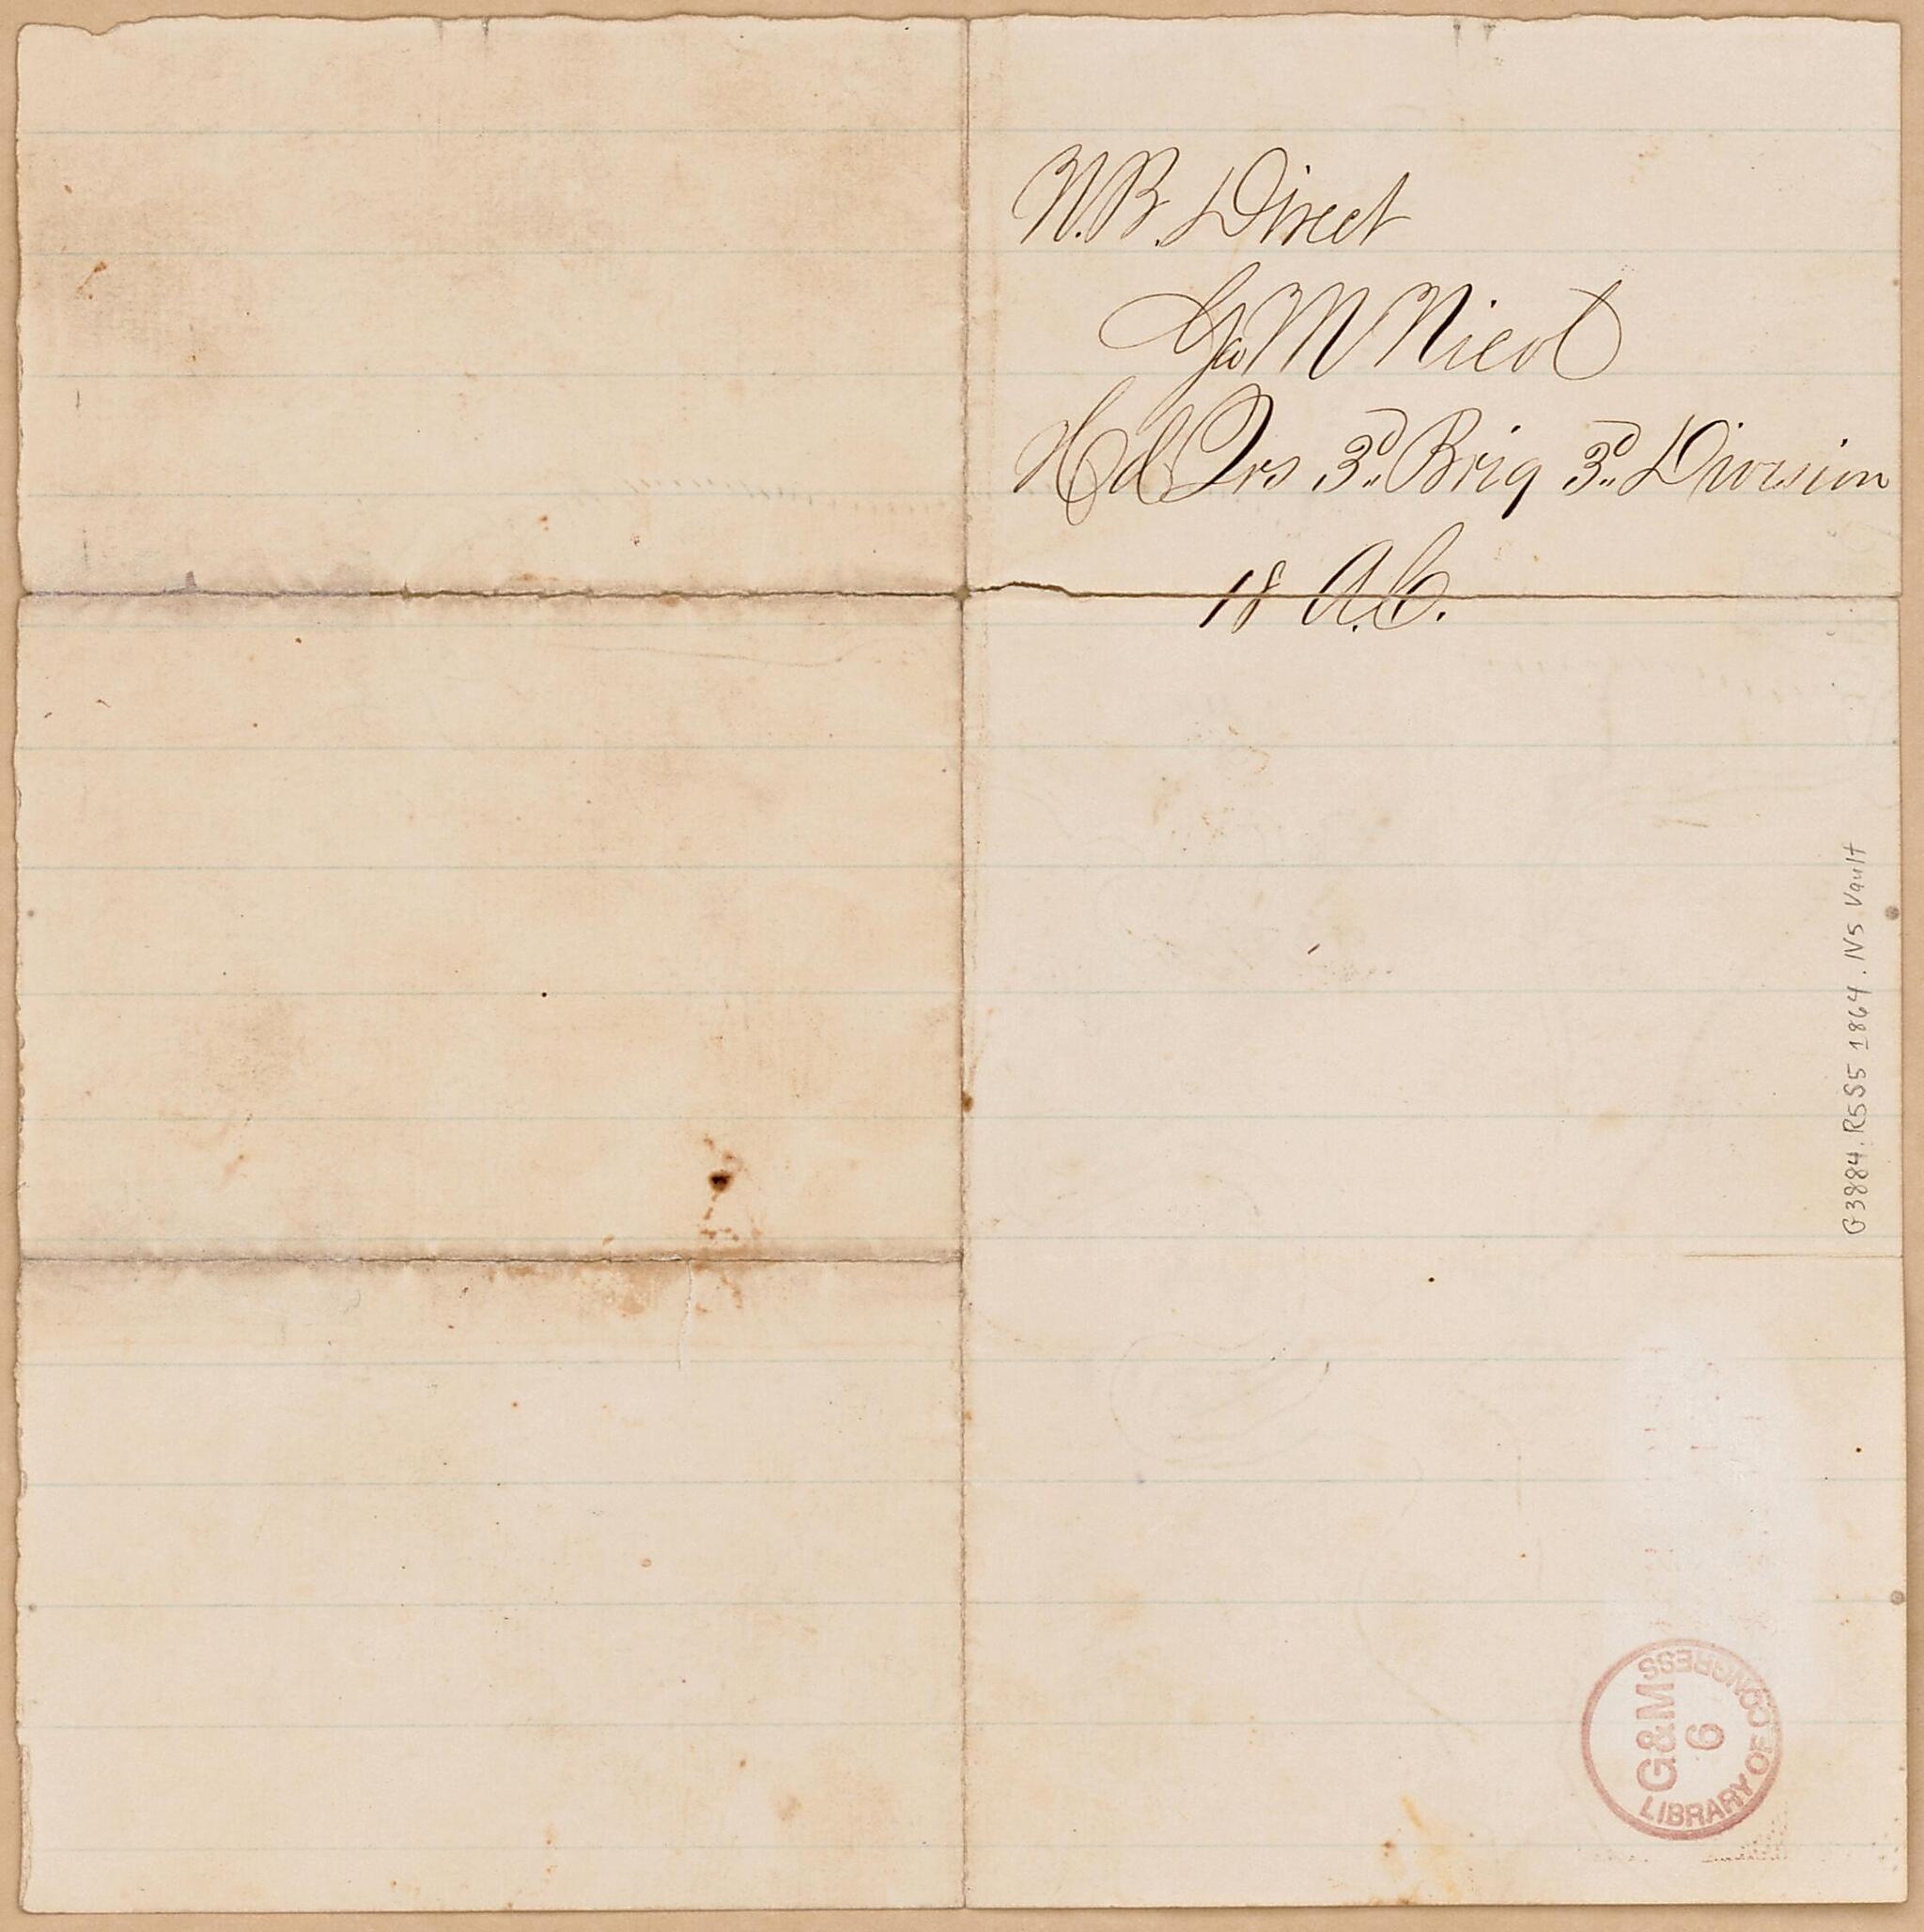 N.B. Direct
Geo M Nicol
Hd Qrs 3d Brig 3d Division
18 A.C.
G3884.R5S5 1864 .N5 Vault
LIBRARY OF CONGRESS
G&M
6